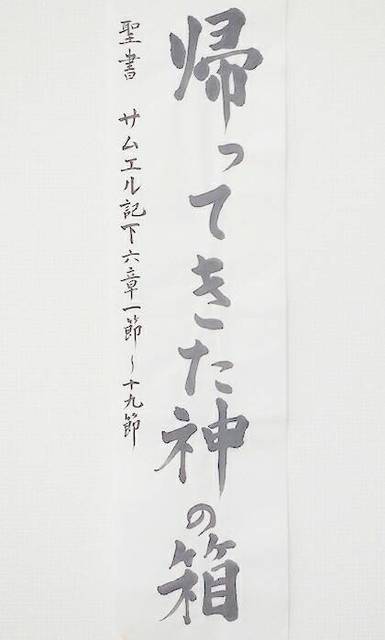 帰ってきた神の箱
聖書　サムエル記下六章一節～十九節